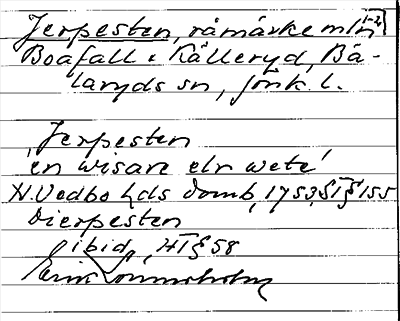 Jerpesten, råmärke mln 1-2
Boafall o Källeryd, Bä-
laryds sn, Jönk. l.
'Jerpesten
en wisare elr wete'
N. Vedbo hds domb, 1753, ST § 155
Dierpesten
ibid, HT § 58
Erik